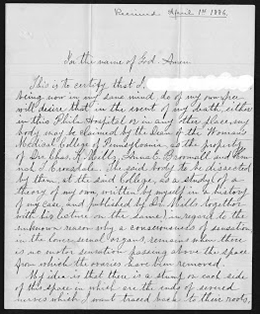 Received April 1st 1886.
In the name of God. Amen.
This is to certify that I
being now in my sane mind, do of my own free
will desire that in the event of my death, either
in this Phila Hospital or in any other place, my
body may be claimed by the Dean of the Woman's
Medical College of Pennsylvania, as the property
of Dr. Chas. K. Mills, Anna E. Broomall and
Hannah T. Croasdale. The said body to be dissected
by them, at the said College, as a study of a
theory of my own, written by myself in a history
of my case, and published by Dr. Mills together
with his lecture on the same, in regard to the
unknown reason why a consciousness of sensation
in the lower sexual organs remains when there
is no motor sensation passing above the space
from which the ovaries have been removed.
My idea is that there is a stump on each side
of this space in which are the ends of severed
nerves which I want traced back to their roots,